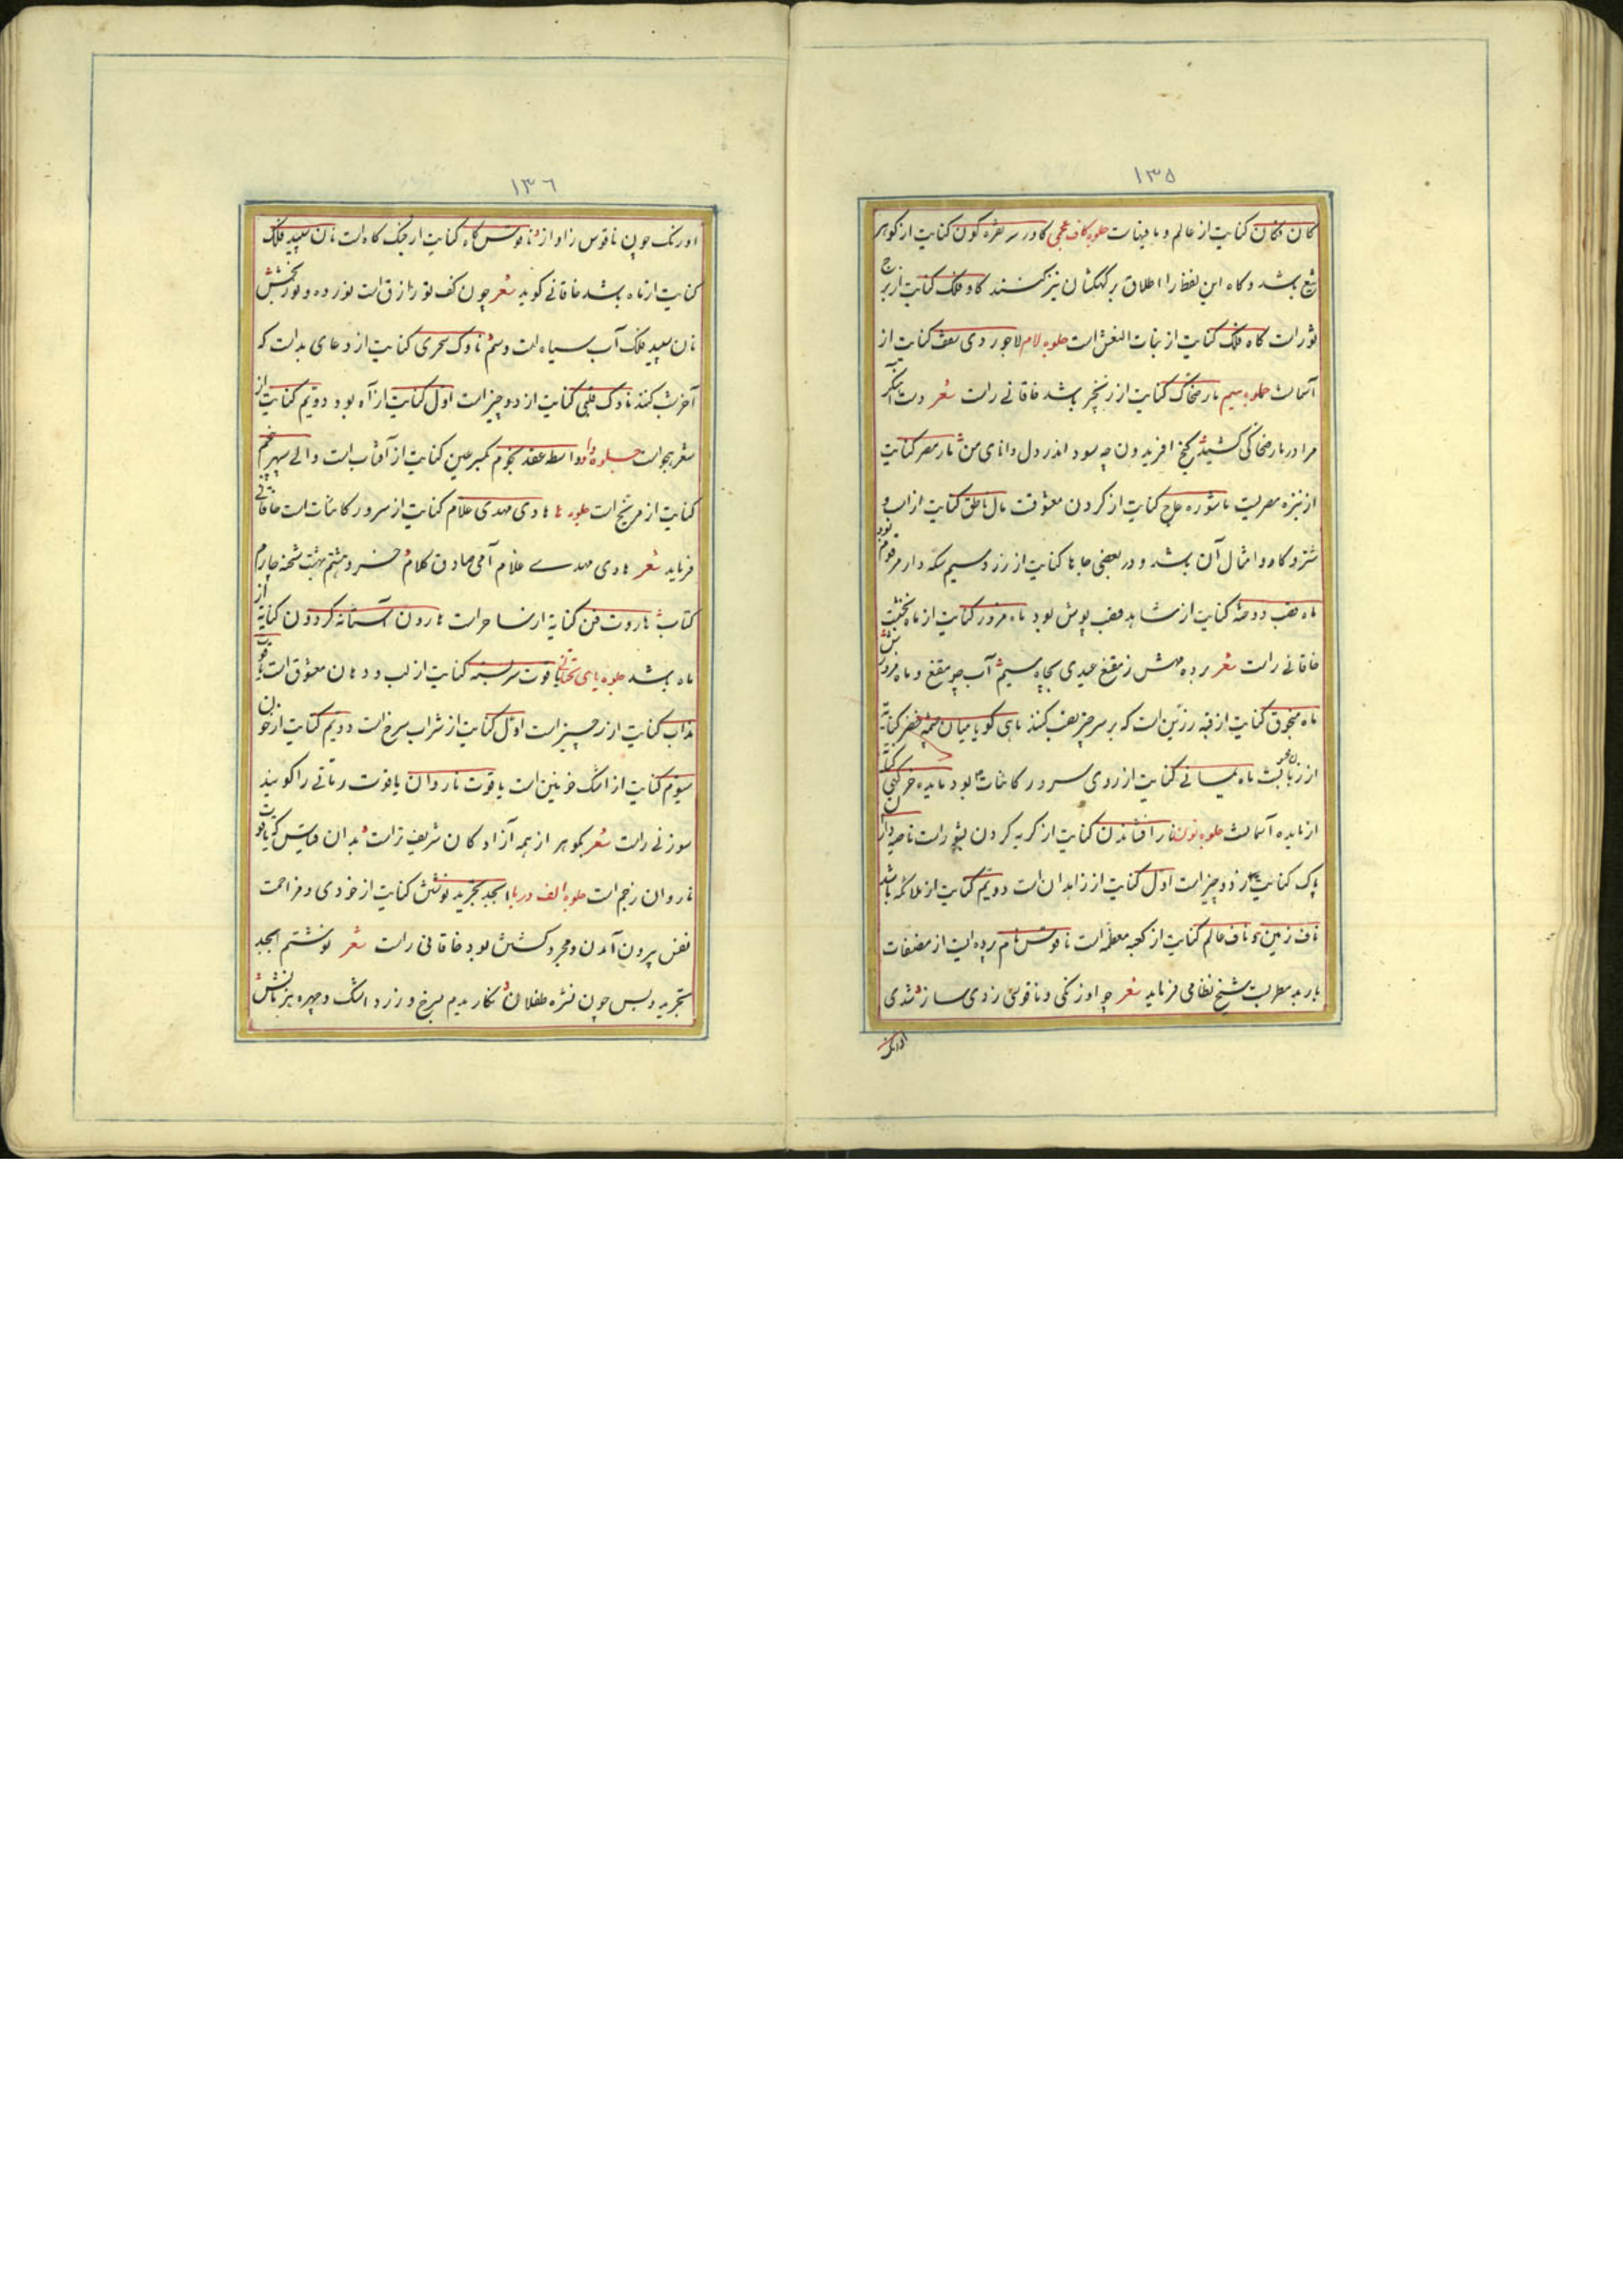 ۱۳۵
کان فکان کنایت از عالم و ما فیهاست جلوه کاف عجمی کاو در سر نقره کون کنایت از کوهر
شع باشد و کاه این لفظ را اطلاق بر کهکشان نیز کنند کاو فلک کنایت از برج
ثور است کاه فلک کنایت از بنات النعش است جلوه لام لاجوردی سقف کنایت از
آسمانست جلوه میم مار ضحاک کنایت از زنجیر باشد خاقانی راست شعر دست آهنگر
مرا در مار ضحاکی کشید گنج افریدون چه سود اندر دل دانای من مار مصر کنایت
از نیزه مصریست ماشوره عاج کنایت از کردن معشوقست مال ناطق کنایت از اسب و
شتر و کاو و امثال آن باشد و در بعضی جاها کنایت از زر و سیم سکه دار مرقوم بود
ماه قصب دوخته کنایت از شاهد قصب پوش بود ماه مزور کنایت از ماه نخشب
خاقانی راست شعر برده مهش ز مقنع عیدی بچاه سیم آب چه مقنع و ماه مزورش
ماه منجوق کنایت از قبه زرین است که بر سر چتر نصب کنند ماهی کویا میان چشمه خضر کنایة
از زبانست ماه یمانی کنایت از روی سرور کاینات بود مایده خرکهی
از مایده آسمانست جلوه نون نار افشاندن کنایت از کریه کردن بشور است ناصیه دار
پاک کنایت از دو چیز است اول کنایت از زاهدان است دویم کنایت از ملائکه باشد
ناف زمین و ناف عالم کنایت از کعبه معظمه است ناقوس نام پرده ایست از مصنفات
باربد مطربت شیخ نظامی فرماید شعر چو اورنکی و ناقوسی زدی ساز شدی
اورنک
۱۳۶
اورنک چون ناقوس ز آواز ناقوس کاه کنایت از جنک کاه است نان سپید فلک
کنایت از ماه باشد خاقانی کوید شعر چون کف تو رازق است نور ده و نور بخش
نان سپید فلک آب سیاه است وسم ناوک سحری کنایت از دعای بد است که
آخر شب کنند ناوک قلبی کنایت از دو چیز است اول کنایت از آه بود دویم کنایت از
شعر هجو است جلوه واو واسطه عقد نجوم بکسر عین کنایت از آفتاب است والی سپهر پنجم
کنایت از مریخ است جلوه ها هادی مهدی غلام کنایت از سرور کاینات است خاقانی
فرماید شعر هادی مهدی غلام امی صادق کلام خسرو هشتم بهشت شحنه چارم
کتاب هاروت فن کنایة از ساحر است هارون آستانه کردون کنایة از
ماه باشد جلوه یای تحتانی یاقوت سر بسته کنایت از لب و دهان معشوق است یاقوت
مذاب کنایت از سه چیز است اول کنایت از شراب سرخ است دویم کنایت از خون
سیوم کنایت از اشک خونین است یاقوت ناروان یاقوت رمانی را کویند
سوزنی راست شعر بکوهر از همه آزادکان شریف تر است بدان قیاس که یاقوت
ناروان ز جم است جلوه الف در با ابجد تجرید نوشتن کنایت از خودی و مزاحمت
نفس بیرون آمدن و مجرد کشتن بود خاقانی راست شعر نوشتم ابجد
تجرید و پس چون نشره طفلان نکاریدم بسرخ و زرد اشک و چهره بنشانش